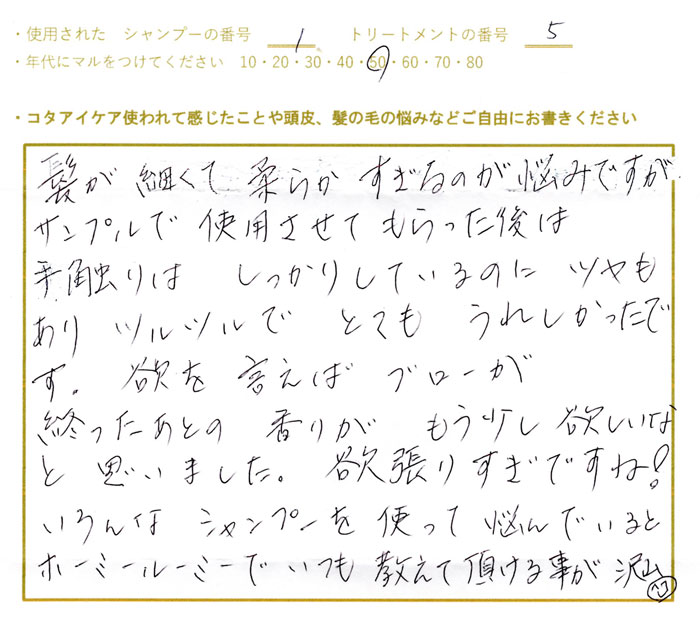 ・使用された シャンプーの番号 1 トリートメントの番号 5
・年代にマルをつけてください 10・20・30・40・50・60・70・80
・コタアイケア使われて感じたことや頭皮、髪の毛の悩みなどご自由にお書きください
髪が 細くて 柔らか すぎるのが悩みですが、
サンプルで 使用させて もらった後は
手触りは しっかりしているのに ツヤも
あり ツルツルで とても うれしかったで
す。 欲を 言えば ブローが
終ったあとの 香りが もう少し 欲しいな
と 思いました。 欲張りすぎですね!
いろんな シャンプーを 使って 悩んでいると
ホーミールーミーで いつも 教えて 頂ける事が 沢山